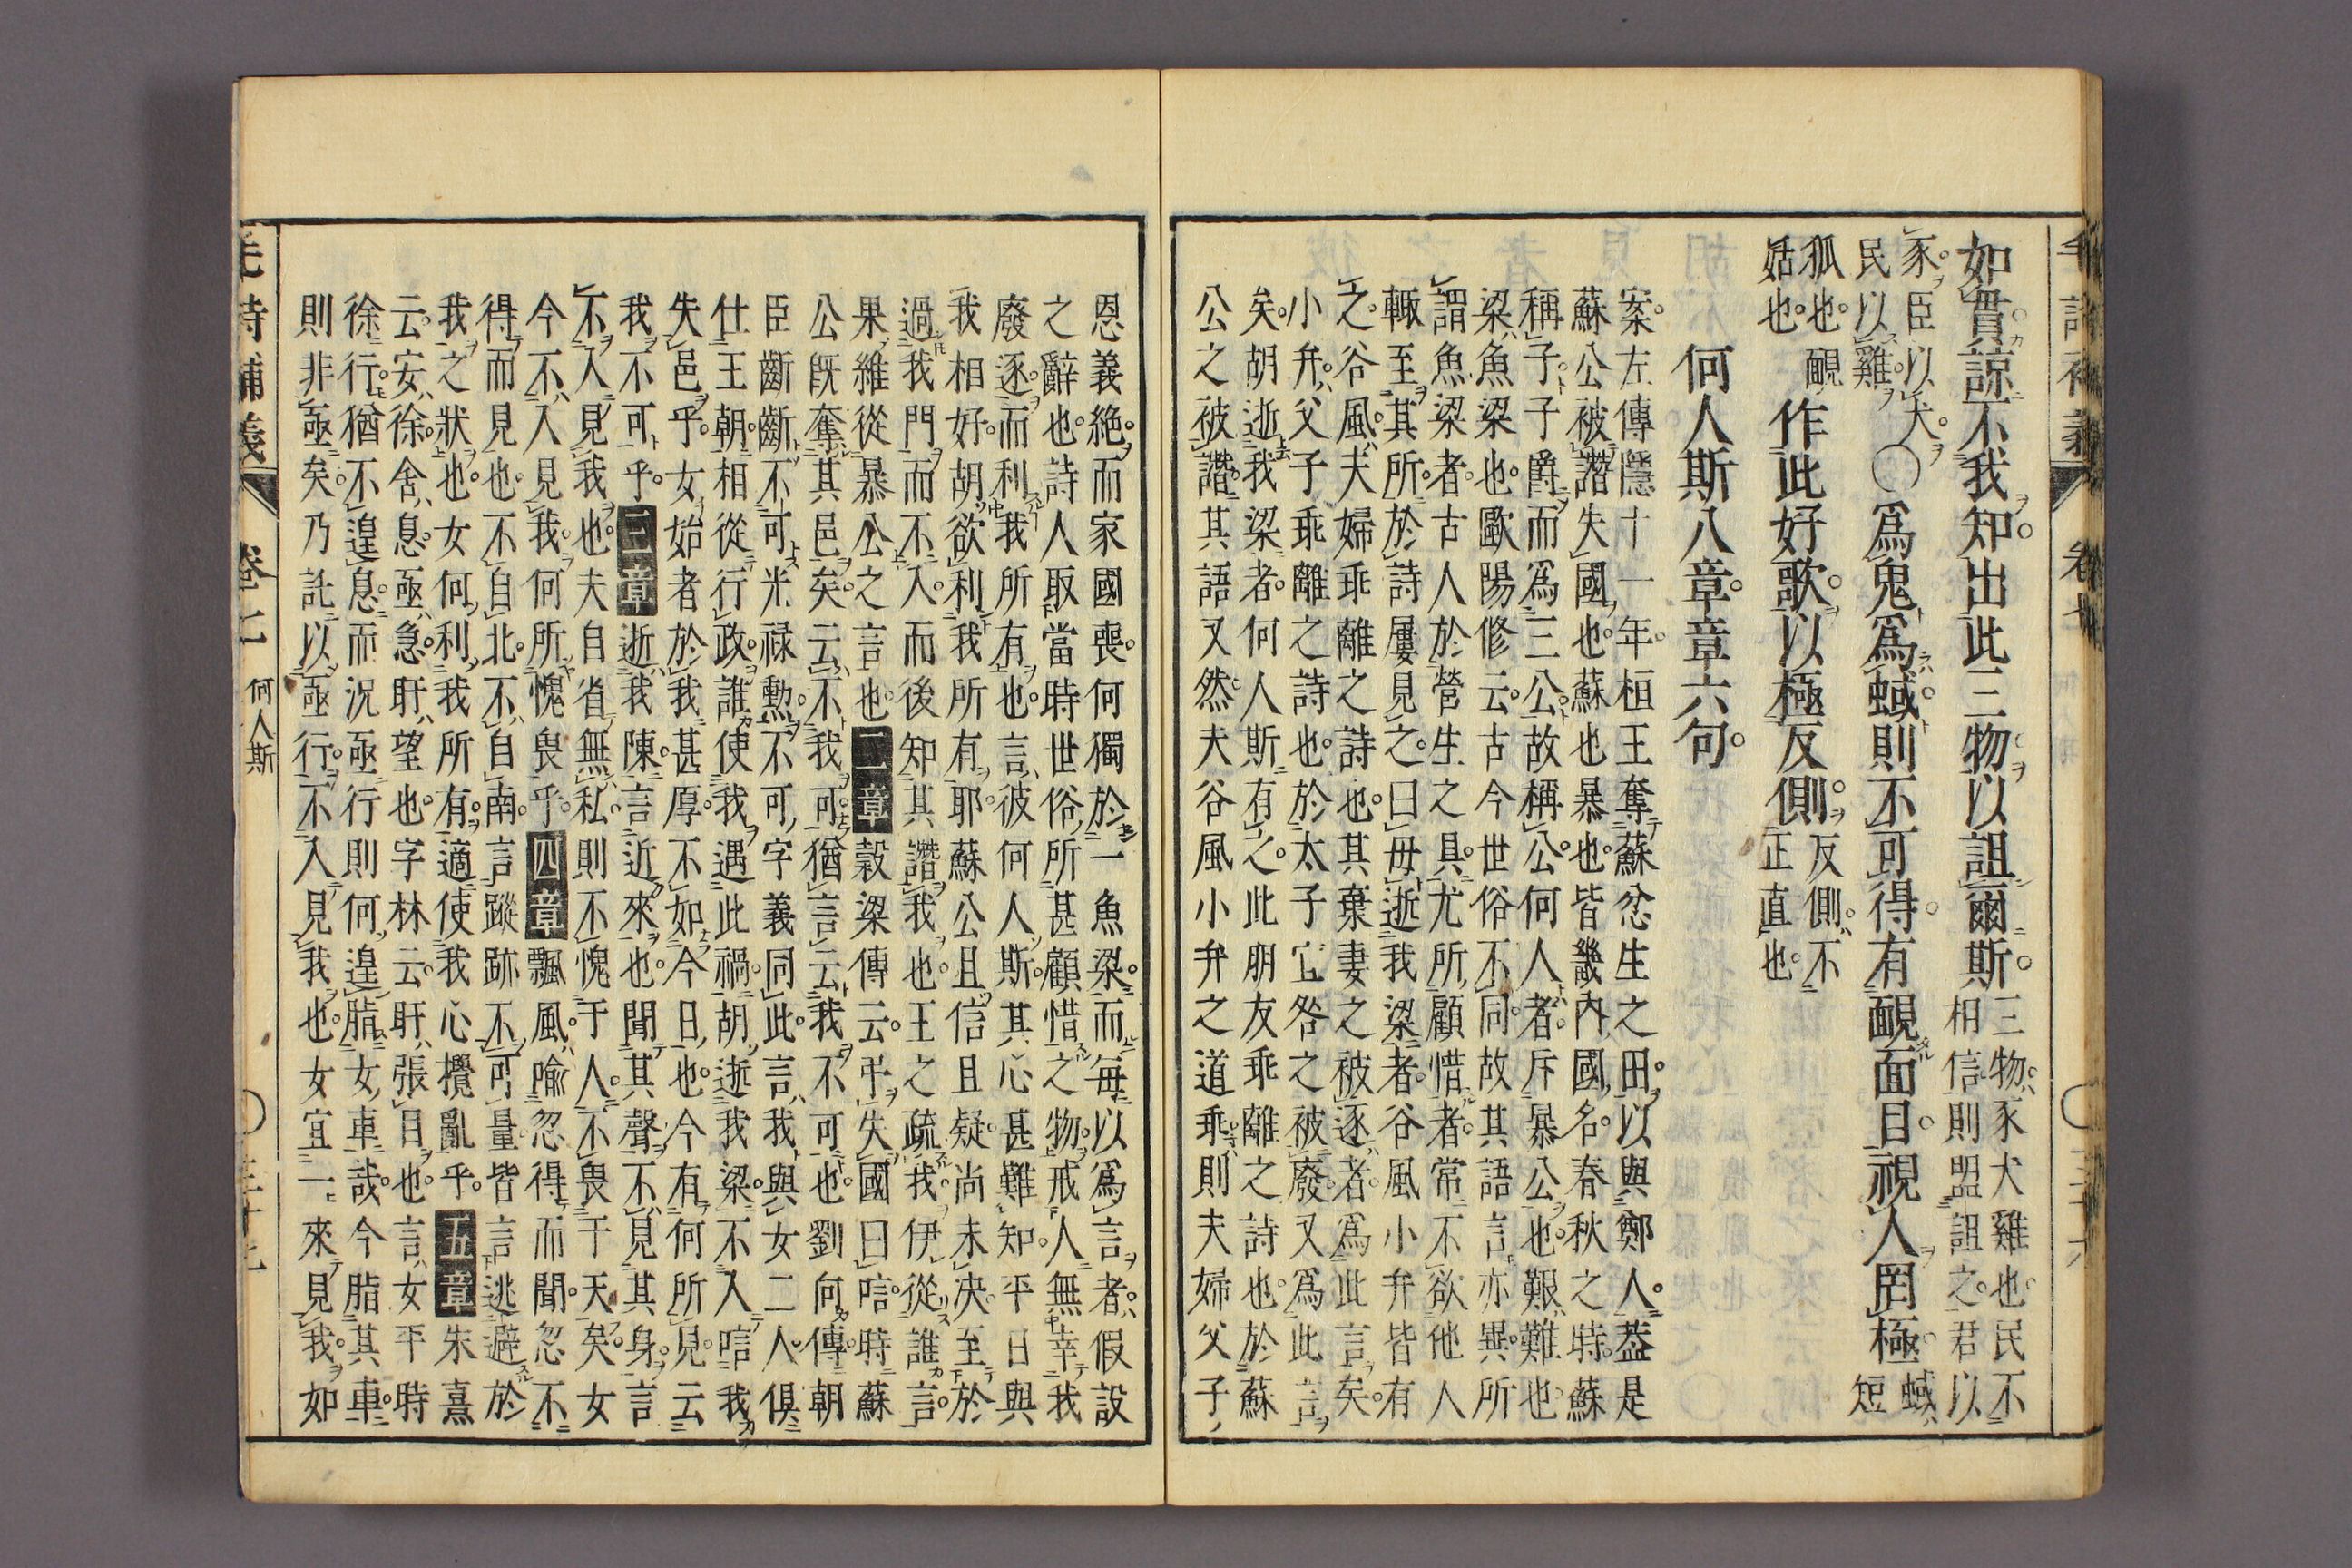 如貫諒不我知出此三物以詛爾斯
三物豕犬雞也民不
相信則盟詛之君以
豕臣以犬
民以雞
○爲鬼爲蜮則不可得有靦面目視人罔極
蜮短
狐也靦
姡也
作此好歌以極反側
反側不
正直也
何人斯八章章六句
案左傳隱十一年桓王奪蘇忿生之田以與鄭人葢是
蘇公被譖失國也蘇也暴也皆畿內國名春秋之時蘇
稱子子爵而爲三公故稱公何人者斥暴公也艱難也
梁魚梁也歐陽修云古今世俗不同故其語言亦異所
謂魚梁者古人於營生之具尤所顧惜者常不欲他人
輙至其所於詩屢見之曰毋逝我梁者谷風小弁皆有
之谷風夫婦乖離之詩也其棄妻之被逐者爲此言矣
小弁父子乖離之詩也於太子宜咎之被廢又爲此言
矣胡逝我梁者何人斯有之此朋友乖離之詩也於蘇
公之被譖其語又然夫谷風小弁之道乖則夫婦父子
恩義絶而家國喪何獨於一魚梁而每以爲言者假設
之辭也詩人取當時世俗所甚顧惜之物戒人無幸我
廢逐而利我所有也言彼何人斯其心甚難知平日與
我相好胡欲利我所有耶蘇公且信且疑尚未决至於
過我門而不入而後知其譖我也王之疏我伊從誰言
果維從暴公之言也二章穀梁傳云弔失國曰唁時蘇
公旣奪其邑矣云不我可猶言云我不可也劉向傳朝
臣齗齗不可光禄勲不可字義同此言我與女二人俱
仕王朝相從行政誰使我遇此禍胡逝我梁不入唁我
失邑乎女始者於我甚厚不如今日也今有何所見云
我不可乎三章逝我陳言近來也聞其聲不見其身言
不入見我也夫自省無私則不愧于人不畏于天矣女
今不入見我何所愧畏乎四章飄風喩忽得而聞忽不
得而見也不自北不自南言蹤跡不可量皆言逃避於
我之狀也女何利我所有適使我心攪亂乎五章朱熹
云安徐舍息亟急盱望也字林云盱張目也言女平時
徐行猶不遑息而況亟行則何遑脂女車哉今脂其車
則非亟矣乃託以亟行不入見我也女宜一來見我如
毛詩補義 卷七 何人斯